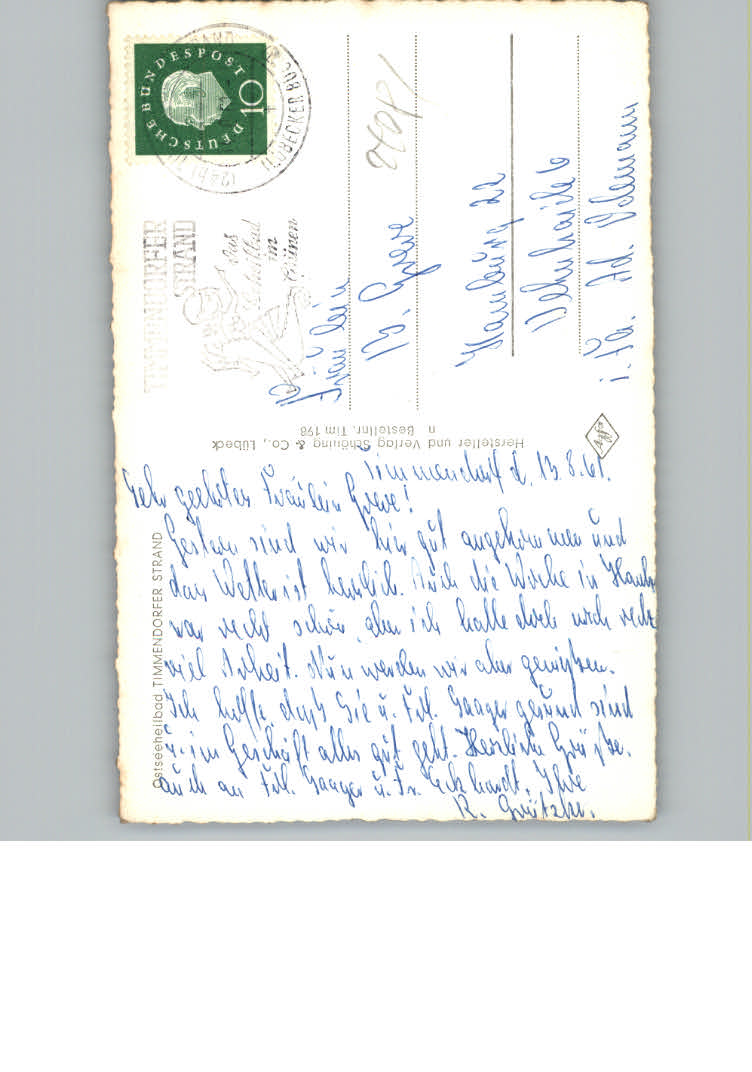 Timmendorf d. 13.8.61.
Sehr geehrtes Fräulein Greve!
Gestern sind wir hier gut angekommen und
das Wetter ist herrlich. Auch die Woche in Hambg
war recht schön, aber ich hatte doch noch recht
viel Arbeit. Nun werden wir aber genießen.
Ich hoffe, daß Sie u. Frl. Saager gesund sind
u. im Geschäft alles gut geht. Herzliche Grüße
auch an Frl. Saager u. Fr. Eckhardt. Ihre
R.
Fräulein
B. Greve
Hamburg 22
i. Fa. Ad.
Ostseeheilbad TIMMENDORFER STRAND
Hersteller und Verlag Schöning & Co., Lübeck
n Bestellnr. Tim 198
Agfa
DEUTSCHE BUNDESPOST
10
(LÜBECKER BUCHT)
TIMMENDORFER
STRAND
Das
Seeheilbad
im
Grünen